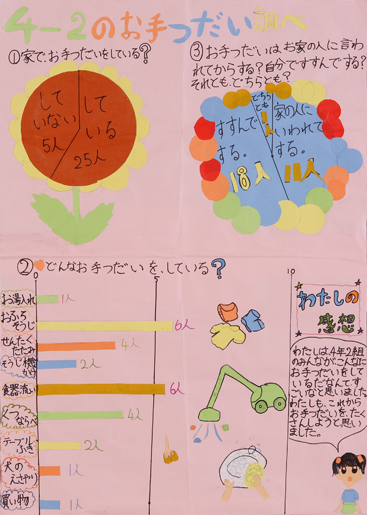 4-2のお手つだい調べ
①家でお手つだいをしている?
して
いない
5人
して
いる
25人
③お手つだいはお家の人に言わ
れてからする?自分ですすんでする?
それとも、どちらとも?
すすんで
する。
18人
どちら
とも
1人
家の人に
いわれて
する。
11人
②どんなお手つだいを、している?
0
5
10
お湯入れ
1人
おふろ
そうじ
6人
せんたく
たたみ
4人
2人
食器洗い
6人
ならべ
4人
テーブル
ふき
2人
犬の
えさやり
1人
買い物
1人
わたしの
感想
わたしは、4年2組
のみんながこんなに
お手つだいをして
いるだなんてす
ごいなと思いました。
わたしも、これから
お手つだいを、たく
さんしようと思い
ました。